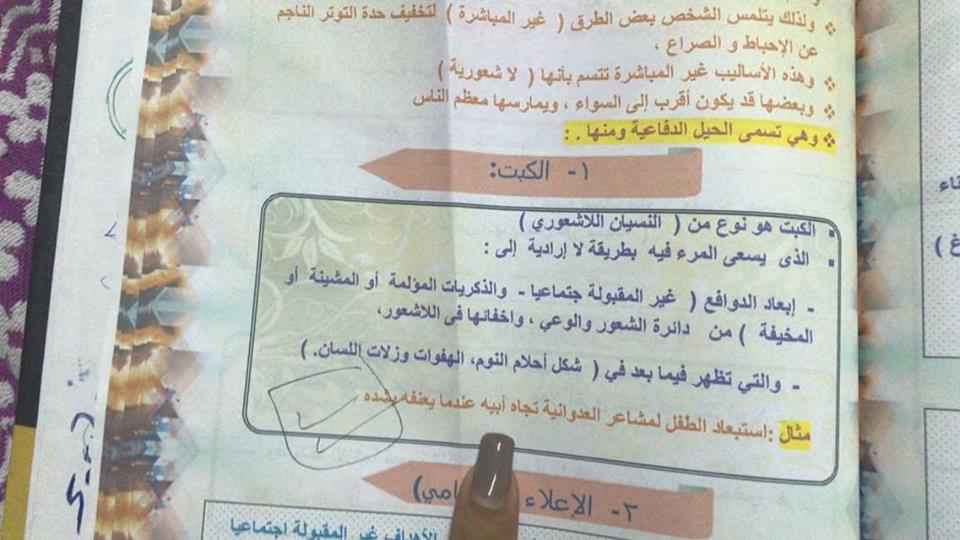 ❖ ولذلك يتلمس الشخص بعض الطرق ( غير المباشرة ) لتخفيف حدة التوتر الناجم
عن الإحباط و الصراع ،
❖ وهذه الأساليب غير المباشرة تتسم بأنها ( لا شعورية )
❖ وبعضها قد يكون أقرب إلى السواء ، ويمارسها معظم الناس
❖ وهي تسمى الحيل الدفاعية ومنها . :
١- الكبت:
▪ الكبت هو نوع من ( النسيان اللاشعوري )
▪ الذى يسعى المرء فيه بطريقة لا إرادية إلى :
- إبعاد الدوافع ( غير المقبولة جتماعيا - والذكريات المؤلمة أو المشينة أو
المخيفة ) من دائرة الشعور والوعي ، واخفائها فى اللاشعور،
- والتي تظهر فيما بعد في ( شكل أحلام النوم، الهفوات وزلات اللسان. )
مثال :استبعاد الطفل لمشاعر العدوانية تجاه أبيه عندما يعنفه بشده
٣- الإعلاء
الأهداف غير المقبولة اجتماعيا